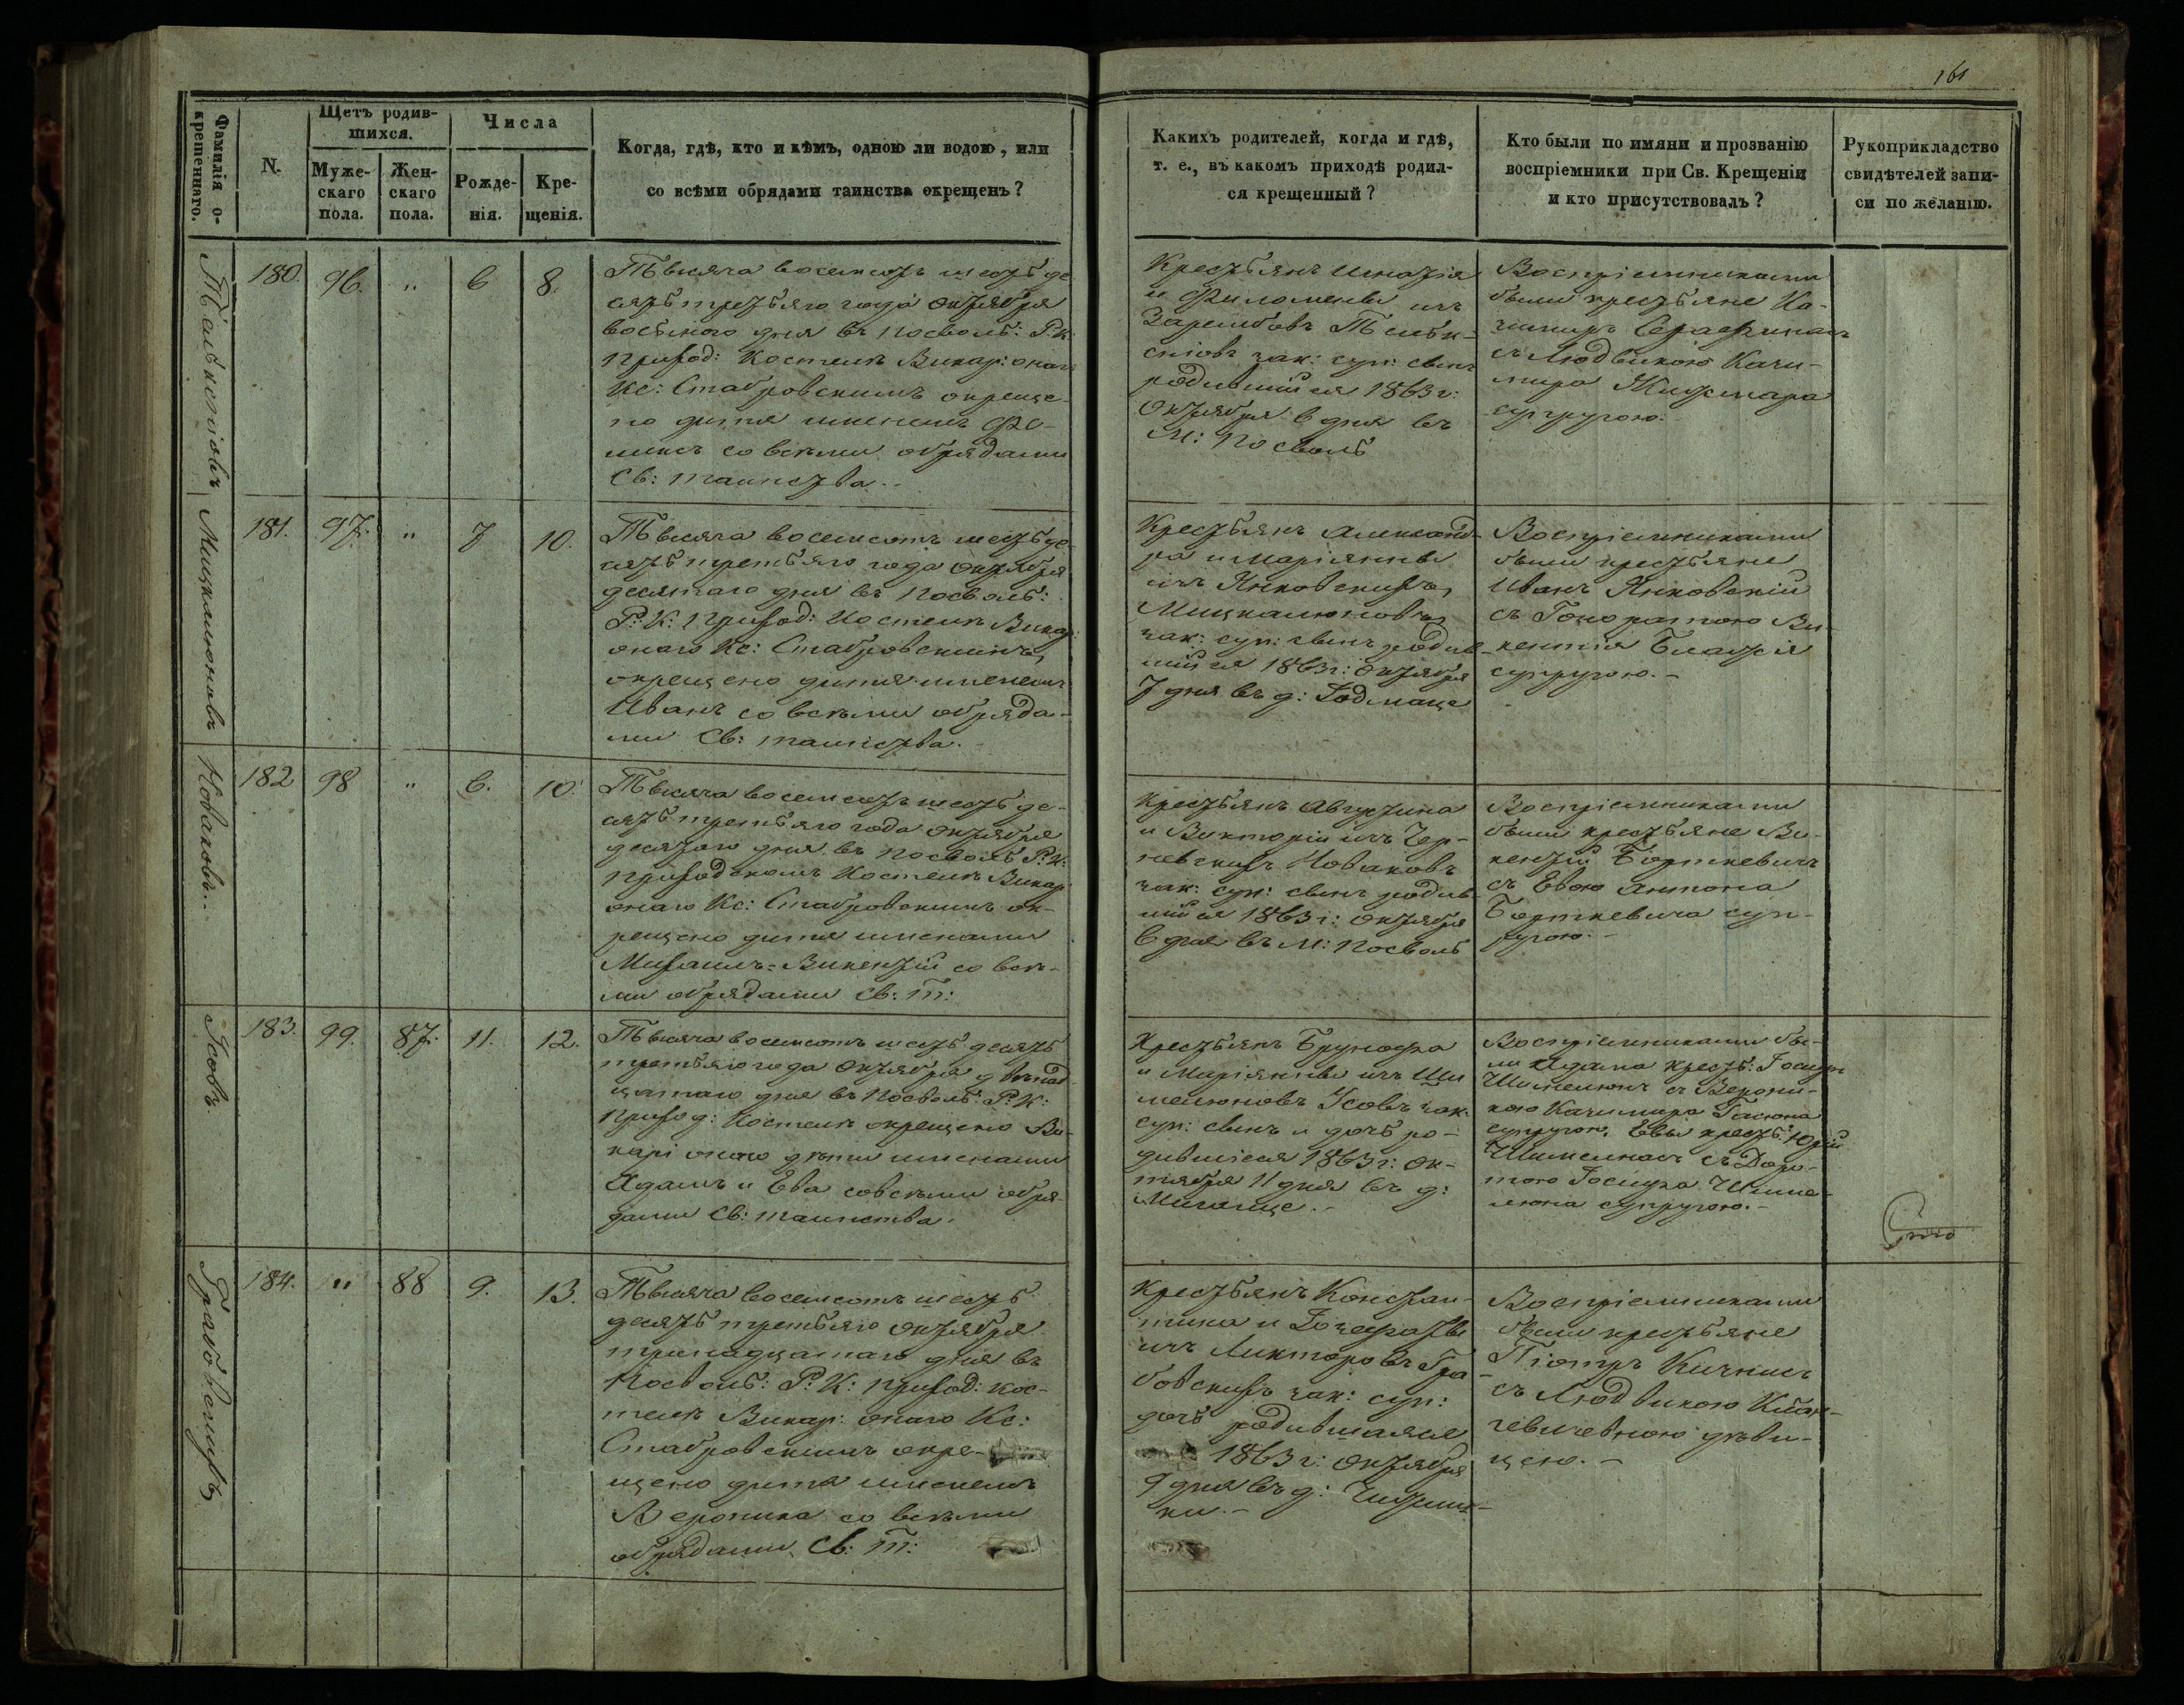 161
Фамилія о-
крещеннаго.
N.
Щетъ родив-
шихся.
Муже-
скаго
пола.
Жен-
скаго
пола.
Числа
Рожде-
нія.
Кре-
щенія.
Когда, гдѣ, кто и кѣмъ, одною ли водою, или
со всѣми обрядами таинства окрещенъ?
Какихъ родителей, когда и гдѣ,
т. е., въ какомъ приходѣ родил-
ся крещенный?
Кто были по имяни и прозванію
воспріемники при Св. Крещеніи
и кто присутствовалъ?
Рукоприкладство
свидѣтелей запи-
си по желанію.
180. 96. " 6 8.
Тысяча восемсотъ шестьде
сятъ третьяго года Октября
восьмого дня въ Посволь: Р. К.
Приход: Костелѣ Викар: онаго
Кс: Стабровскимъ окреще-
но дитя именемъ Фе-
ликсъ со всѣми обрядами
Св: таинства.
Крестьянъ Игнатія
и Филомены изъ
Зарембовъ
зак: суп: сынъ
родившійся 1863 г:
Октября 6 дня въ
М: Посволь
Воспріемниками
были крестьяне Ка-
зимиръ
съ Людвикою Кази-
мира
супругою.
Мицкалюновъ
181. 97. " 7 10.
Тысяча восемсотъ шестьде-
сятъ третьяго года Октября
десятаго дня въ Посволь:
Р: К: Приход: Костелѣ Викар:
онаго Кс: Стабровскимъ,
окрещено дитя именемъ
Иванъ со всѣми обряда-
ми Св: таинства.
Крестьянъ Александ-
ра и Маріянны
изъ Янковскихъ,
Мицкалюновъ,
зак: суп: сынъ родив-
шійся 1863 г: Октября
7 дня въ д:
Воспріемниками
были крестьяне
Иванъ Янковскій
съ Гоноратою Ви-
кентія
супругою.-
Новаковъ.
182 98 " 6. 10.
Тысяча восемсотъ шестьде-
сятъ третьяго года Октября
десятаго дня въ Посволь Р: К:
Приходскомъ Костелѣ Викар:
онаго Кс: Стабровскимъ ок-
рещено дитя именами
Михаилъ=Викентій со всѣ-
ми обрядами Св: Т:
Крестьянъ Августина
и Викторіи изъ Чер-
невскихъ Новаковъ
зак: суп: сынъ родив-
шійся 1863 г: Октября
6 дня въ М: Посволь
Воспріемниками
были крестьяне Ви-
кентій Борткевичъ
съ Евою Антона
Борткевича суп-
ругою.-
Усовъ.
183. 99. 87. 11. 12.
Тысяча восемсотъ шестьдесятъ
третьяго года Октября двѣнад-
цатаго дня въ Посволь: Р: К:
Приход: Костелѣ окрещено Ви-
карі онаго дѣти именами
Адамъ и Ева со всѣми обря-
дами Св: таинства.
Крестьянъ
и Маріянны изъ Ши
мелюновъ Усовъ зак:
суп: сынъ и дочь ро-
дившіеся 1863 г: Ок-
тября 11 дня въ д:
Воспріемниками бы-
ли Адама крест: Іосифъ
съ Верони-
кою Казимира
супругою, Евы крест: Юрій
съ Доро-
тою Іосифа
супругою.-
Грабовскихъ
184. " 88 9. 13.
Тысяча восемсотъ шестьб
десятъ третьяго Октября
тринадцатаго дня въ
Посволь: Р: К: Приход: Кос-
телѣ Викар: онаго Кс:
Стабровскимъ окре-
щено дитя именемъ
Вероника со всѣми
обрядами Св: Т:
Крестьянъ Констан-
тина и Іозефаты
изъ Ликторовъ Гра
бовскихъ зак: суп:
дочь родившаяся
1863 г: Октября
9 дня въ д:
ки.-
Воспріемниками
были крестьяне
Піотръ
съ Людвикою
дѣви-
цею.-